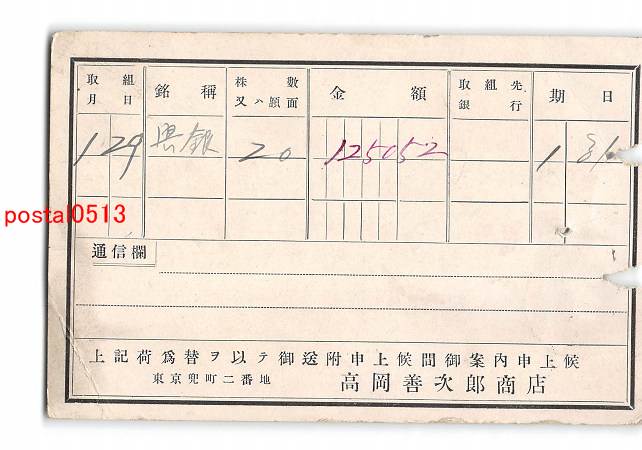 取組月日 銘稱 株數又ハ額面 金額 取組先銀行 期日
1 29 興銀 20 125052 1 31
postal0513
通信欄
上記荷爲替ヲ以テ御送附申上候間御案内申上候
東京兜町二番地 高岡善次郎商店